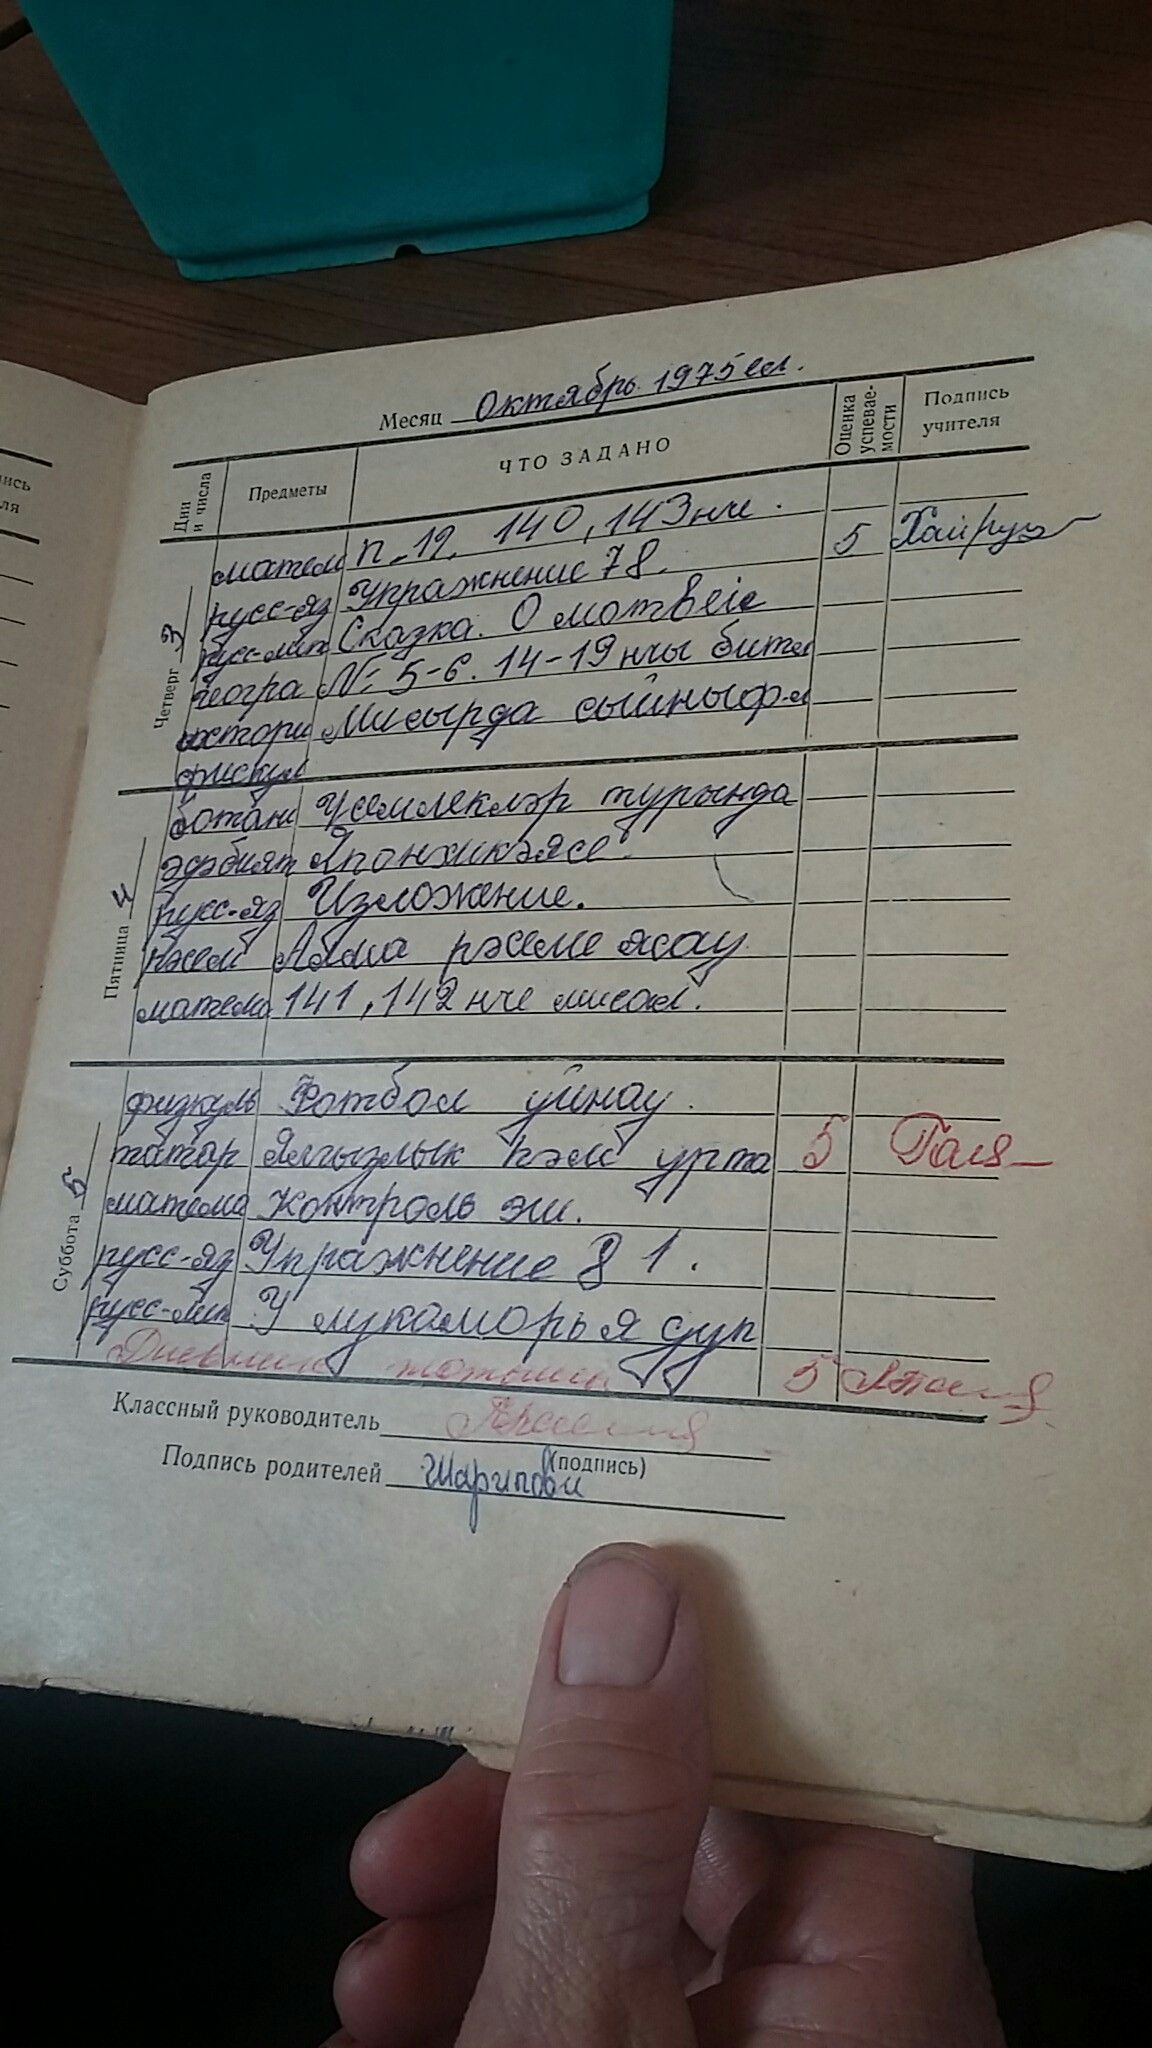 ись
ля
Месяц Октябрь 1975 ел.
Дни и числа Предметы ЧТО ЗАДАНО Оценка успевае-мости Подпись учителя
Четверг 3
матем п. 12. 140, 143 нче.
русс-яз Упражнение 78. 5 Хайруш
русс-лит Сказка. О мотвеие
геогра № 5-6. 14-19 нчы бит
истори Мисырда сыйныф
фискул
Пятница 4
ботани Үсемлекләр турында
әдәбият Япон хикәясе.
русс-яз Изложение.
рәсем Алма рәсеме ясау
матема 141, 142 нче мисал.
Суббота 5
физкуль Футбол уйнау.
татар Ялгызлык һәм урта 5 Галя
матема Контроль эш.
русс-яз Упражнение 81.
русс-лит У лукоморья дуп
Дневник 5
Классный руководитель
(подпись)
Подпись родителей Шарипов